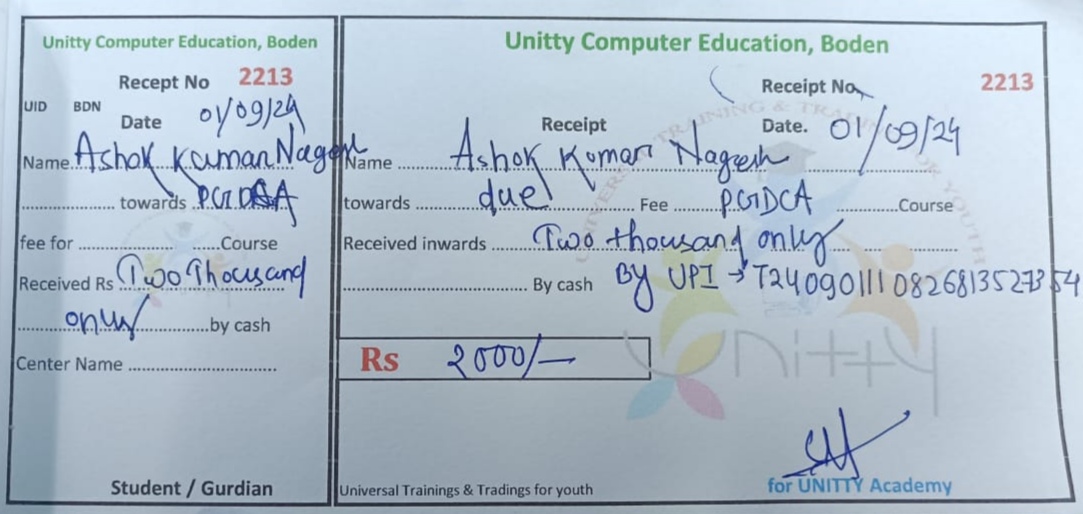 Unitty Computer Education, Boden
Recept No 2213
UID BDN
Date 01/09/24
Name Ashok Kumar Nagesh
towards PGDCA
fee for Course
Received Rs Two Thousand
only by cash
Center Name
Student / Gurdian
Unitty Computer Education, Boden
Receipt No. 2213
Receipt Date. 01/09/24
Name Ashok Kumar Nagesh
towards due Fee PGDCA Course
Received inwards Two thousand only
By cash By UPI → T240901110826813527354
Rs 2000/-
unitty
Universal Trainings & Tradings for youth
for UNITTY Academy